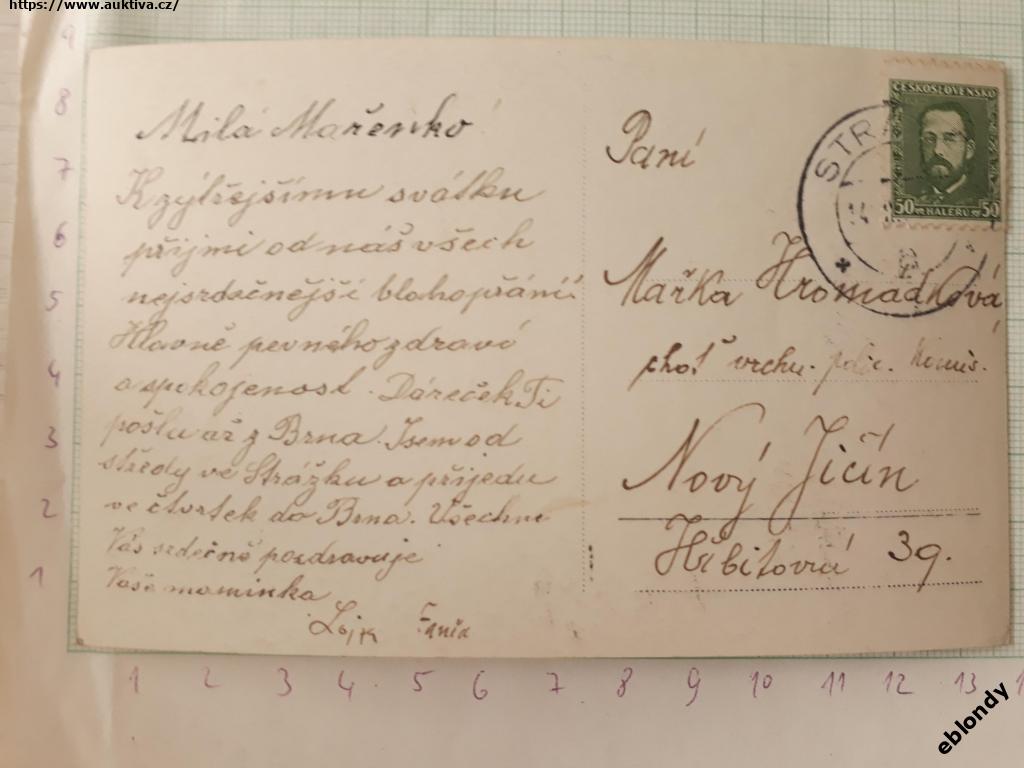 https://www.auktiva.cz/
Milá Mařenko
K zýtřejšímu svátku
přijmi od nás všech
nejsrdečnější blahopřání.
Hlavně pevného zdraví
a spokojenost. Dáreček Ti
pošlu až z Brna. Jsem od
středy ve Strážku a přijedu
ve čtvrtek do Brna. Všechny
Vás srdečně pozdravuje
Vaše maminka
Fanča
Paní
Mařka Hromádková
choť vrchn. polic. komis.
Nový Jičín
Hřbitovní 39.
ČESKOSLOVENSKO
50 HALÉŘŮ 50
STRÁ
14
9
8
7
6
5
4
3
2
1
1 2 3 4 5 6 7 8 9 10 11 12 13 1
eblondy